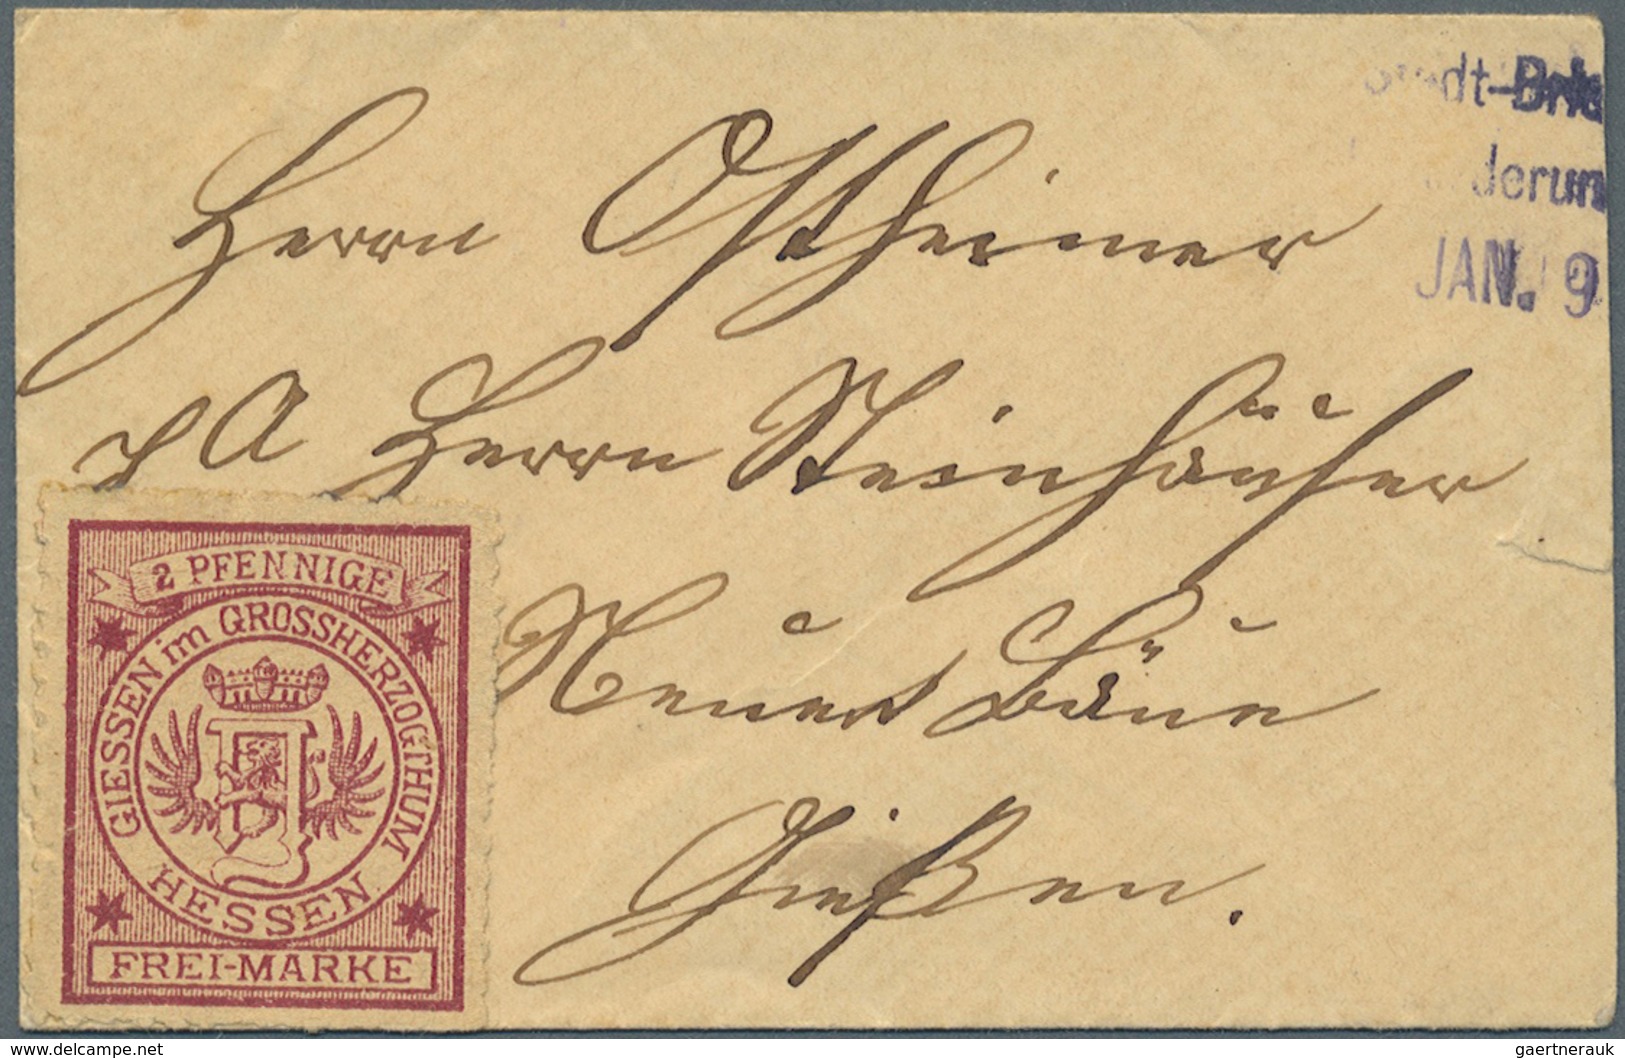 JAN. 9
Herrn Ostheimer
p A Herrn Steinhäuser
Neuen Bäue
Gießen.
2 PFENNIGE
GIESSEN im GROSSHERZOGTHUM
HESSEN
FREI-MARKE
www.delcampe.net
gaertnerauk